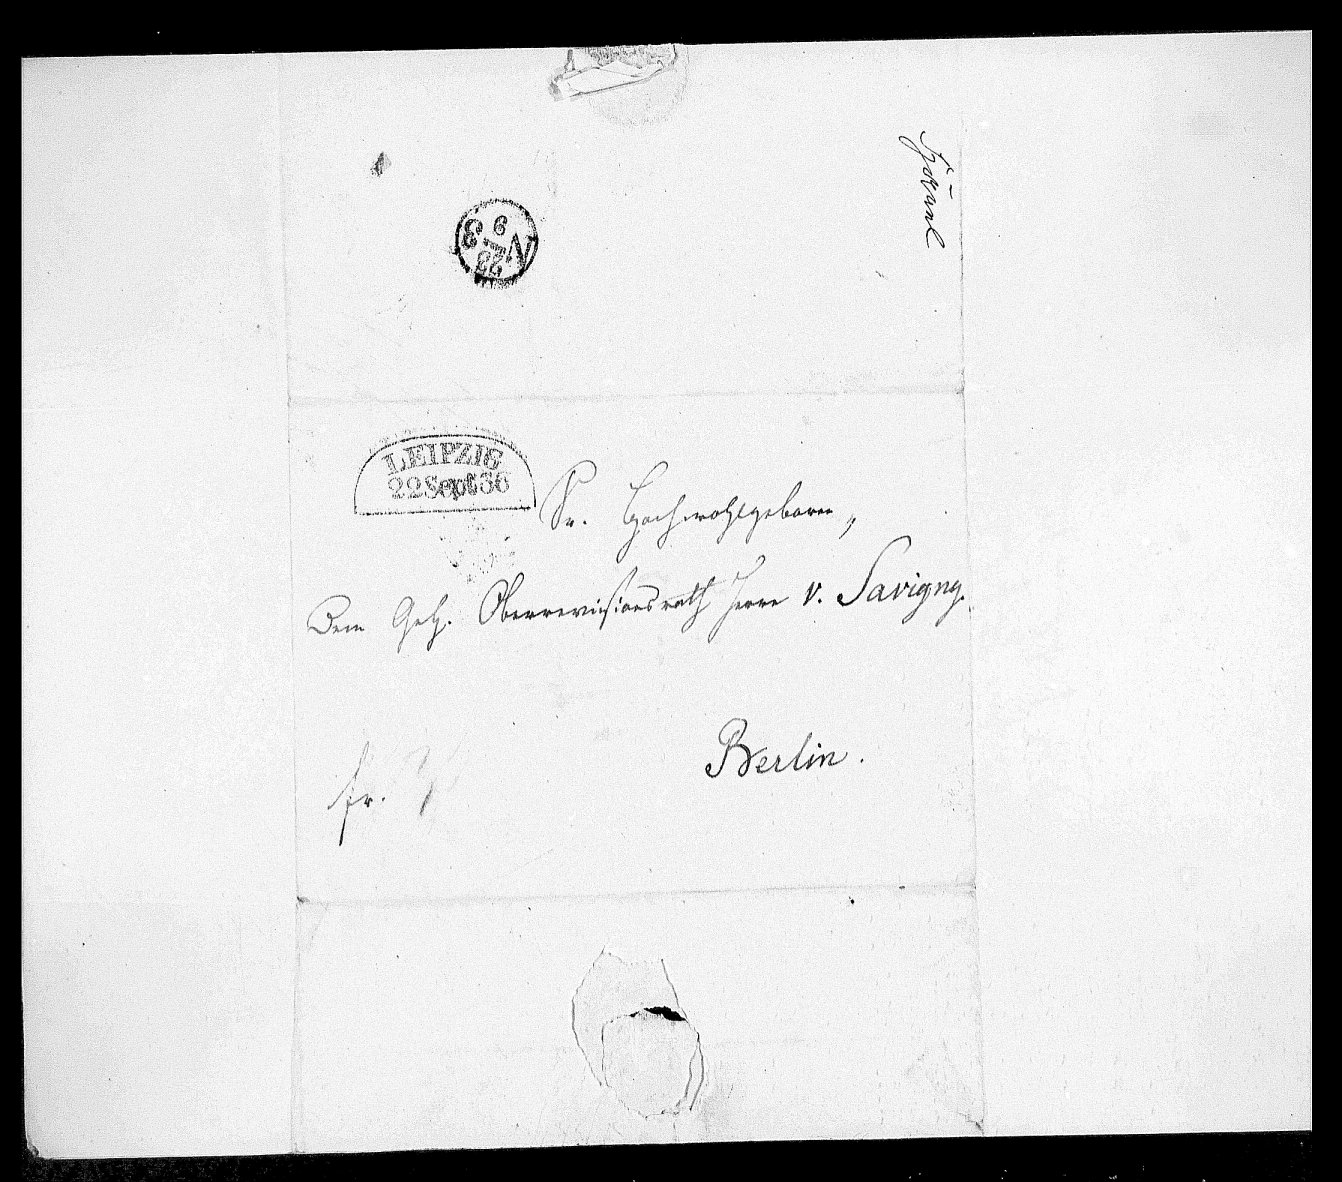 Hänel
N 3
23
9
LEIPZIG
22 Sept 36
Sr. Hochwohlgeboren,
Dem Geh. Oberrevisionsrath Herrn v. Savigny.
Berlin.
fr.